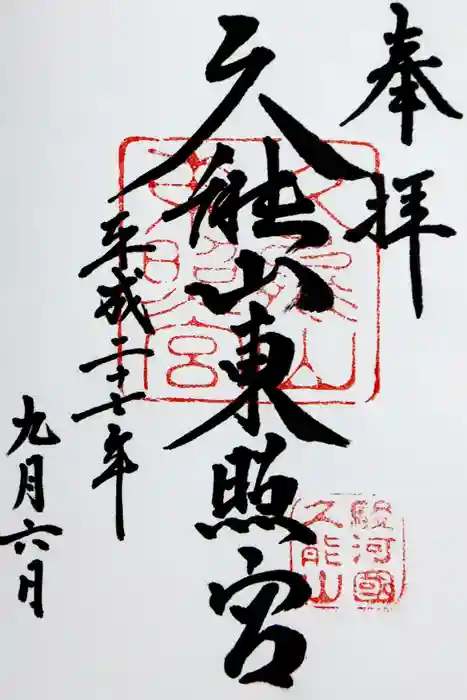 奉拝
久能山東照宮
平成二十七年
九月六日
久能山
東照宮
駿河國
久能山